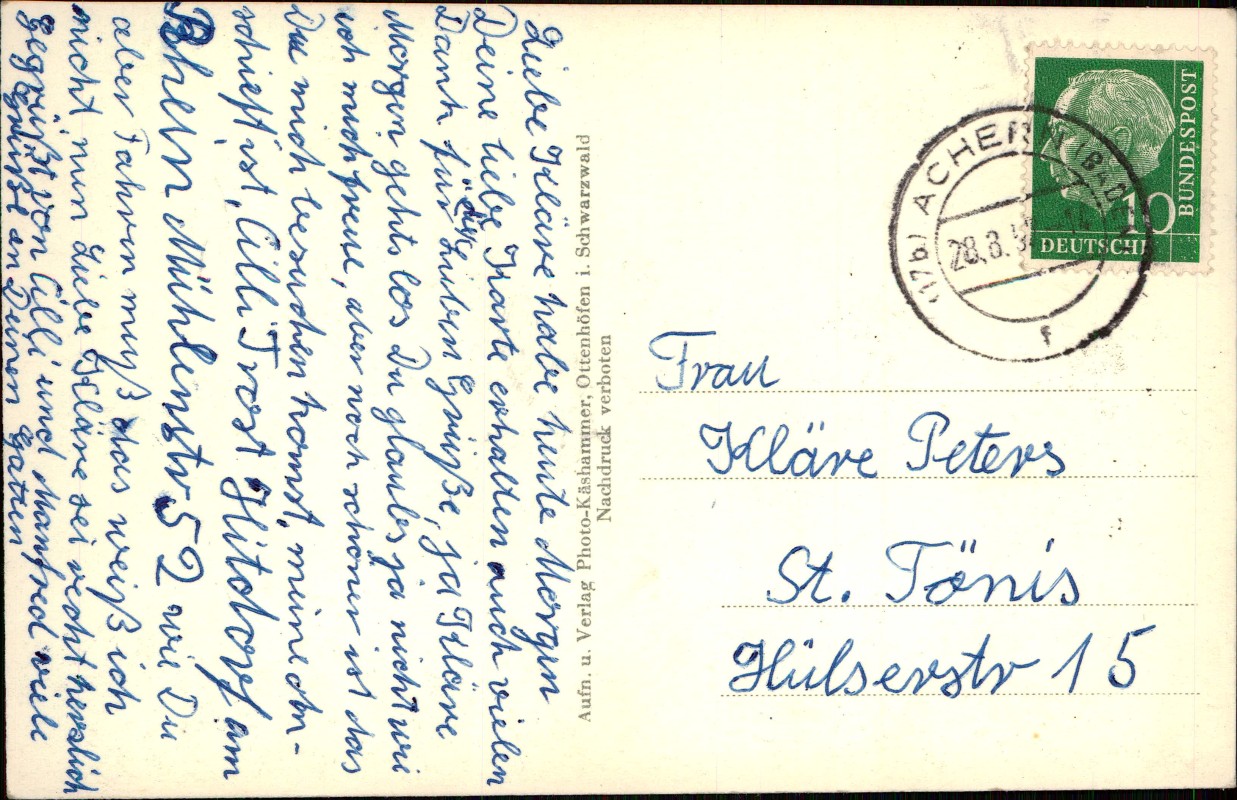 Liebe Kläre habe heute Morgen
Deine liebe Karte erhalten auch vielen
Dank für die lieben Grüße, ja Kläre
Morgen gehts los Du glaubs ja nicht wie
ich mich freue, aber noch schöner ist das
Du mich besuchen komst, meine An-
schrieft ist, Cilli Trost, Hitdorf am
Rhein Mühlenstr 52 wie Du
aber fahren muß das weiß ich
nicht nun Liebe Kläre sei recht herzlich
gegrüßt von Cilli und Manfred viele
Grüße an Deinen Gatten
Aufn. u. Verlag Photo-Käshammer, Ottenhöfen i. Schwarzwald
Nachdruck verboten
DEUTSCHE
BUNDESPOST
10
(17b) ACHERN (BADEN)
28.8.5
f
Frau
Kläre Peters
St. Tönis
Hülserstr 15